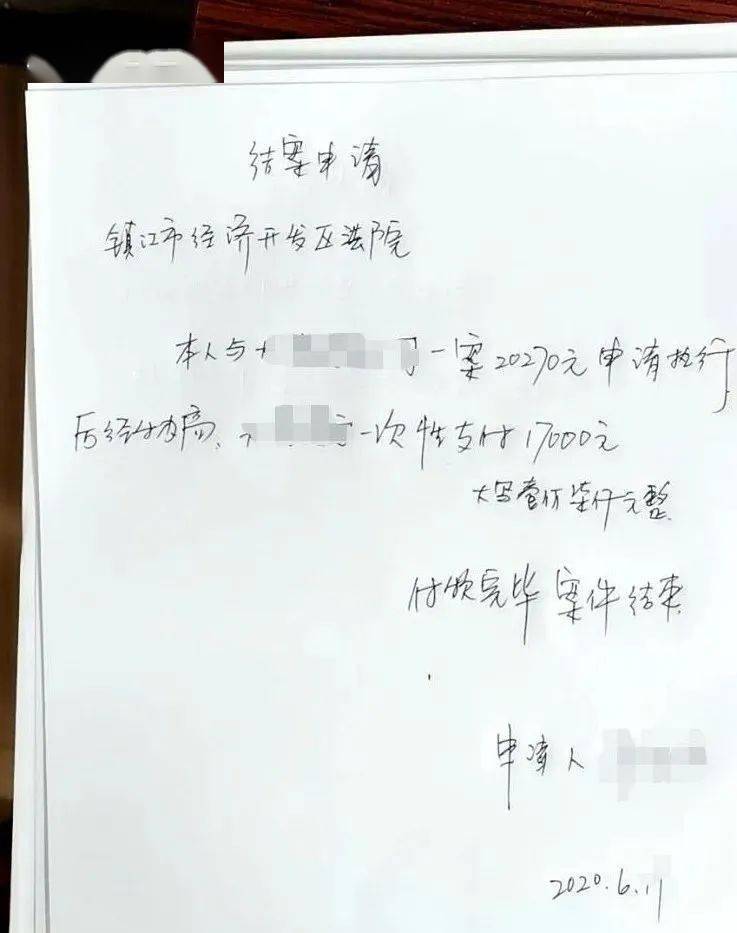 结案申请
镇江市经济开发区法院
本人与 一案20270元申请执行
后经协商, 一次性支付17000元
大写壹万柒仟元整
付款完毕案件结束
申请人
2020.6.11